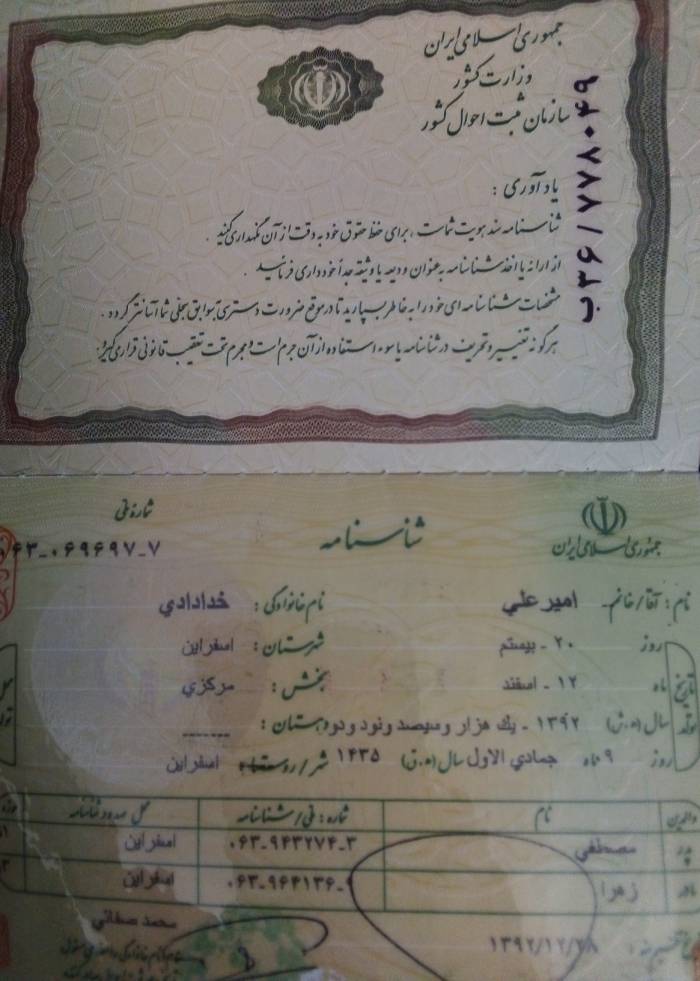 جمهوری اسلامی ایران
وزارت کشور
سازمان ثبت احوال کشور
ب۳۶/۷۷۸۰۴۹
یادآوری :
شناسنامه سند هویت شماست ، برای حفظ حقوق خود به دقت از آن نگهداری کنید .
از ارائه یا اخذ شناسنامه به عنوان ودیعه یا وثیقه جداً خودداری فرمائید .
مشخصات شناسنامه ای خود را به خاطر بسپارید تا در موقع ضرورت دسترسی به سوابق سجلی شما آسانتر گردد .
هرگونه تغییر و تحریف در شناسنامه یا سوء استفاده از آن جرم است و مجرم تحت تعقیب قانونی قرار می گیرد .
جمهوری اسلامی ایران
شناسنامه
شماره ملی
۶۳-۰۶۹۶۹۷-۷
نام : آقا/خانم امیرعلي نام خانوادگی : خدادادي
تاریخ تولد
روز ۲۰ - بیستم شهرستان : اسفراین
ماه ۱۲ - اسفند بخش : مرکزي
سال (ه.ش) ۱۳۹۲ - یك هزار وسیصد ونود ودو دهستان : -------
روز ۹ ماه جمادي الاول سال (ه.ق) ۱۴۳۵ شهر / روستا : اسفراین
والدین نام شماره : ملی / شناسنامه محل صدور شناسنامه حوزه
پدر مصطفي ۰۶۳-۹۴۳۲۷۴-۳ اسفراین
مادر زهرا ۰۶۳-۹۶۴۱۳۶- اسفراین
تاریخ تنظیم سند : ۱۳۹۲/۱۲/۲۸
محمد صفائي